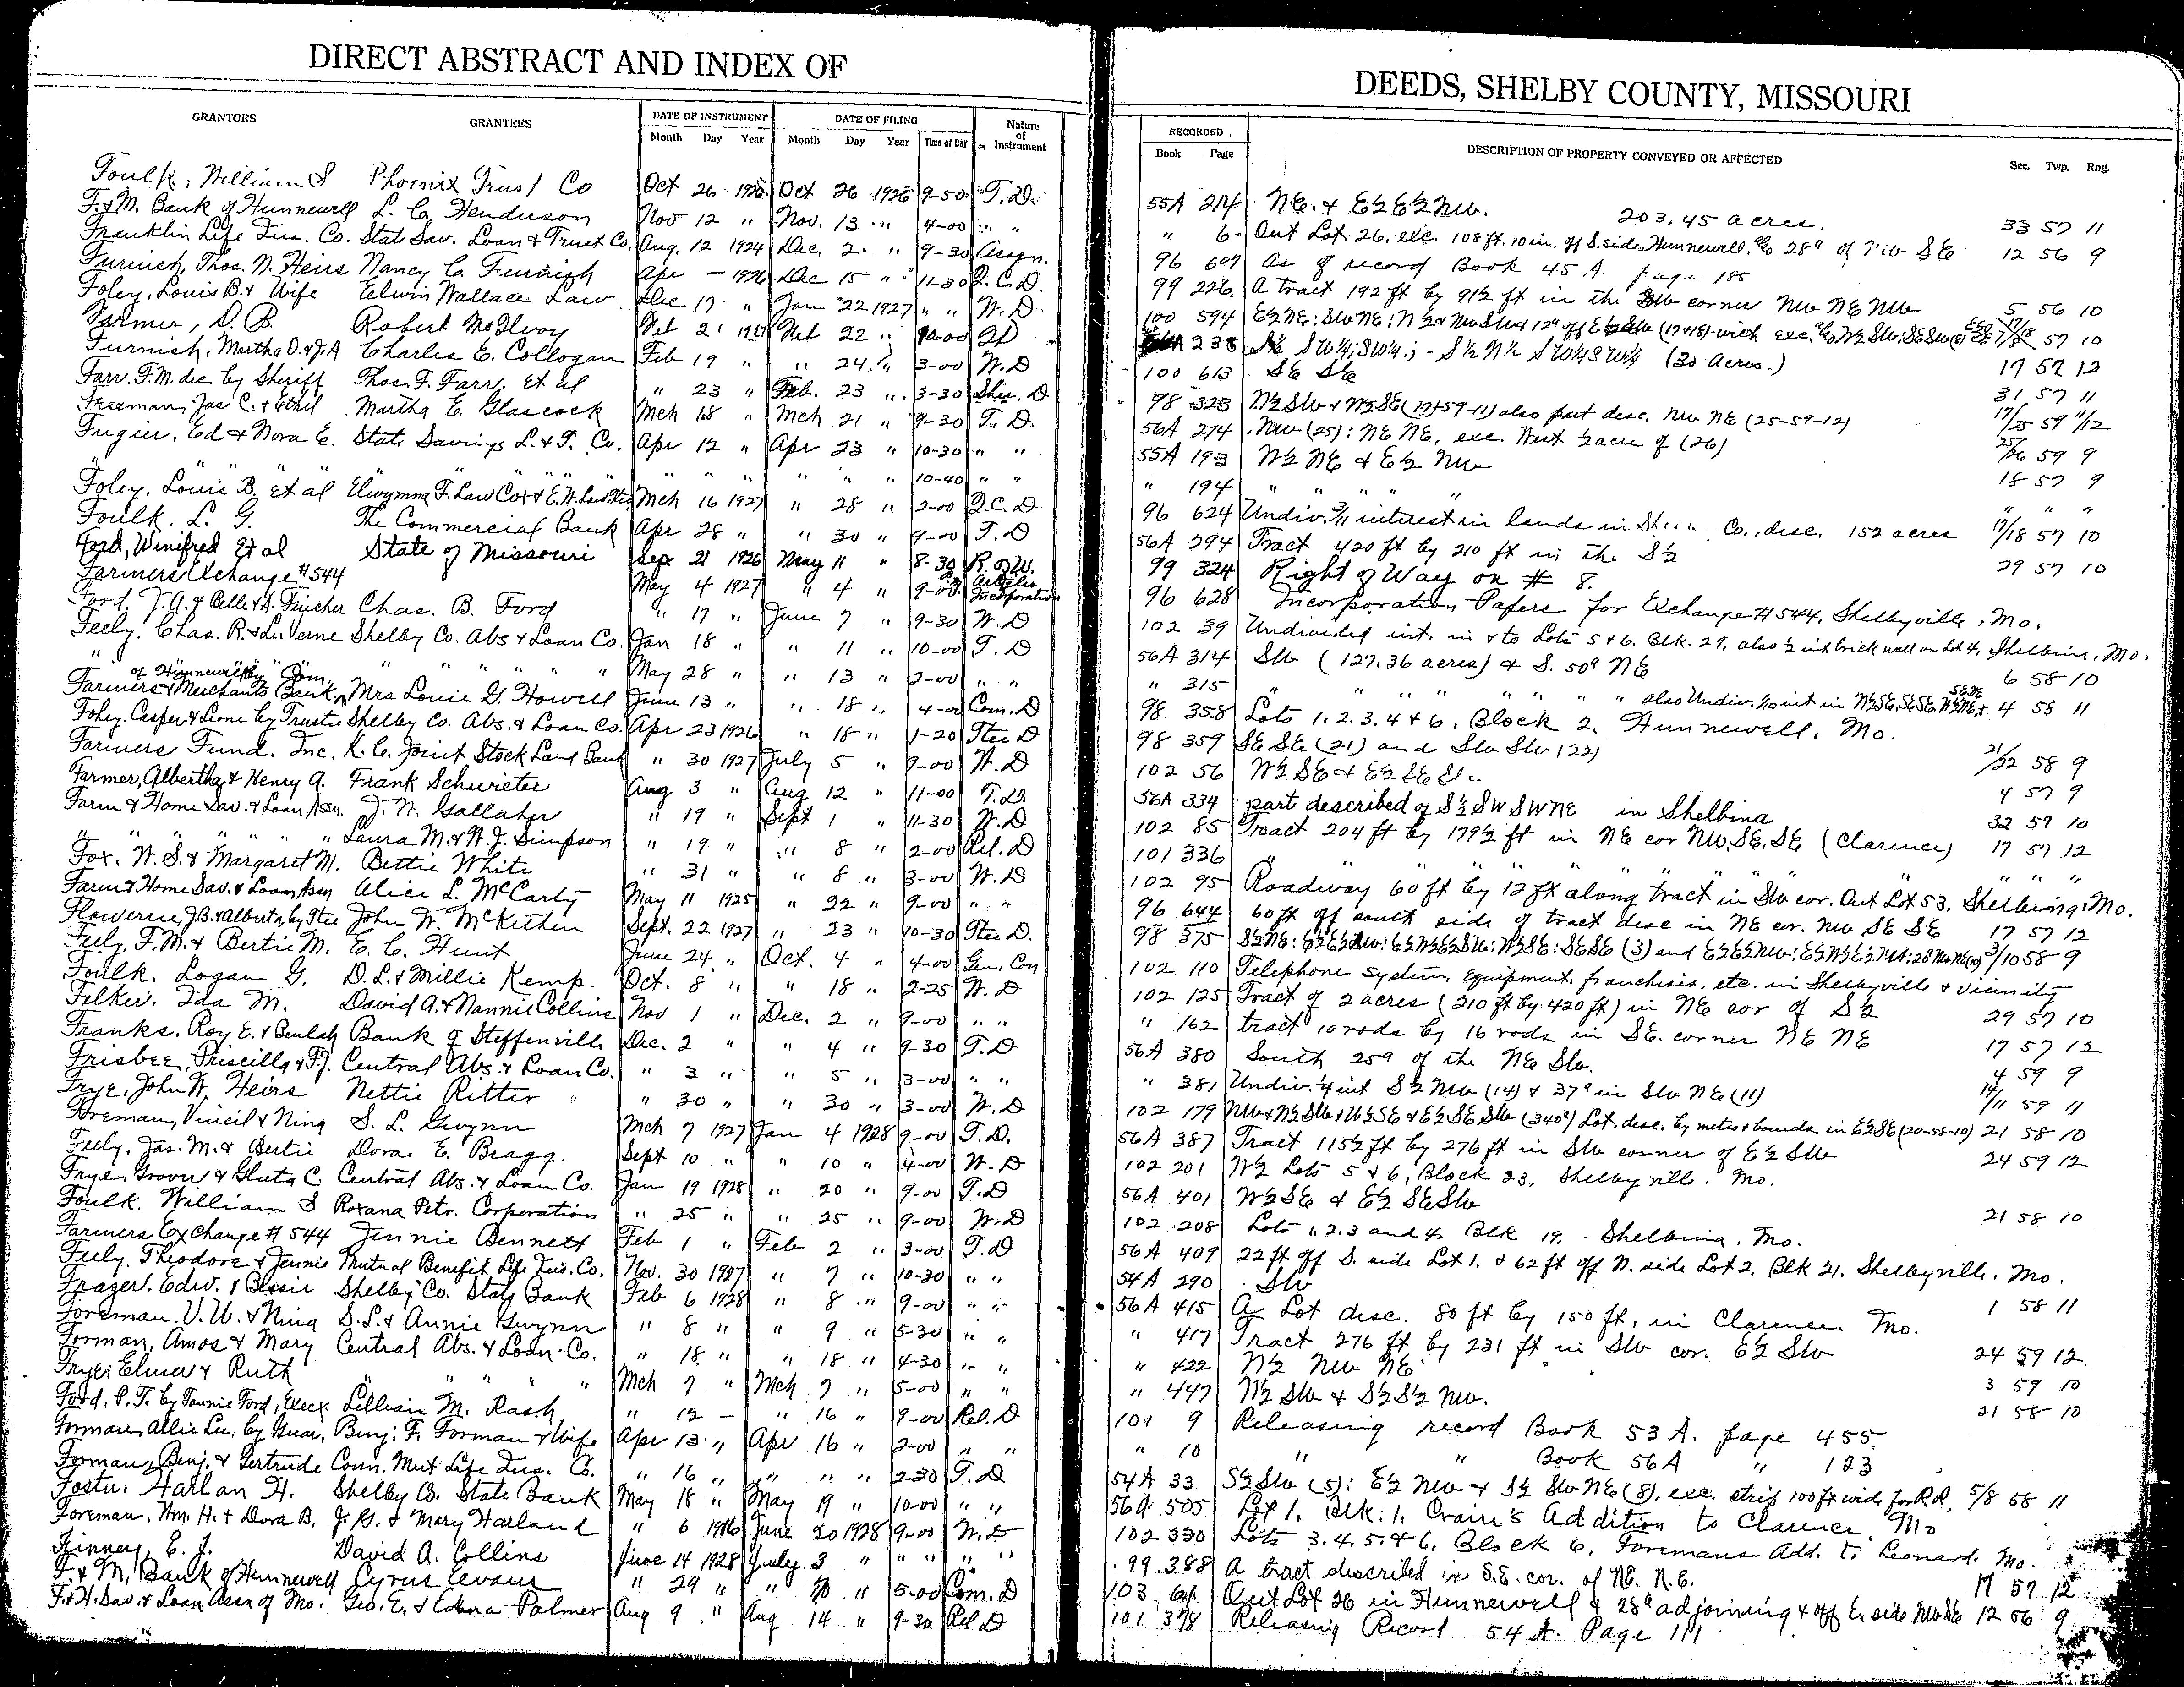 DIRECT ABSTRACT AND INDEX OF
GRANTORS GRANTEES DATE OF INSTRUMENT DATE OF FILING Nature of Instrument
Month Day Year Month Day Year Time of Day
Foulk, William S Phoenix Trust Co Oct 26 1926 Oct 26 1926 9-50 T.D.
F. & M. Bank of Hunnewell L. C. Henderson Nov 12 " Nov. 13 " 4-00 " "
Franklin Life Ins. Co. State Sav. Loan & Trust Co. Aug. 12 1924 Dec. 2 " 9-30 Assgn.
Furnish, Thos. N. Heirs Nancy C. Furnish Apr — 1926 Dec 15 " 11-30 Q.C.D.
Foley, Louis B. & Wife Edwin Wallace Law Dec. 17 " Jan 22 1927 " " W.D.
Farmer, D. B. Robert McIlvoy Feb 21 1927 Feb 22 "
Furnish, Martha O. & J.A Charles E. Collogan Feb 19 " " 24 " 3-00 W.D
Farr. F.M. dec by Sheriff Thos. F. Farr, et al " 23 " Feb. 23 " 3-30 Sher. D
Freeman, Jas C. & Ethel Martha E. Glascock Mch 18 " Mch 21 " 9-30 T.D.
Fugier, Ed & Nora E. State Savings L. & T. Co. Apr 12 " Apr 23 " 10-30 " "
" " " " " " " " " " " " 10-40 " "
Foley, Louis B, et al Mch 16 1927 " 28 " 2-00 Q.C.D
Foulk. L. G. The Commercial Bank Apr 28 " " 30 " 9-00 T.D
Ford, Winifred Et al State of Missouri Sep 21 1926 May 11 " 8-30 R. of W.
Farmers Exchange #544 May 4 1927 " 4 " 9-00 Articles Incorporation
Ford. J.A. & Belle & A. Fincher Chas. B. Ford " 17 " June 7 " 9-30 W.D
Feely. Chas. R. & LuVerne Shelby Co. Abs & Loan Co. Jan 18 " " 11 " 10-00 T.D
" " " " " " " May 28 " " 13 " 2-00 " "
Farmers & Merchants Bank, of Hunnewell by Com. Mrs Louie G. Howell June 13 " " 18 " 4-00 Com. D
Foley. Casper & Leone by Trustee Shelby Co. Abs. & Loan Co. Apr 23 1926 " 18 " 1-20 Ttee D
Farmers Fund. Inc. K. C. Joint Stock Land Bank " 30 1927 July 5 " 9-00 W.D
Farmer, Albertha & Henry A. Frank Schwieter Aug 3 " Aug 12 " 11-00 T.D.
Farm & Home Sav. & Loan Assn. J. W. Gallaher " 19 " Sept 1 " 11-30 W.D
" " " " " " Laura M. & W. J. Simpson " 19 " " 8 " 2-00 Rel. D
Fox. W. S. & Margaret M. Bettie White " 31 " " 8 " 3-00 W.D
Farm & Home Sav. & Loan Assn Alice L. McCarty May 11 1925 " 22 " 9-00 " "
Flowerree, J.B. & Alberta, by Ttee John W. McKithen Sept. 22 1927 " 23 " 10-30 Ttee D.
Feely, F. M. & Bertie M. E. C. Hunt June 24 " Oct. 4 " 4-00 Gen. Con
Foulk. Logan G. D. L. & Millie Kemp. Oct. 8 " " 18 " 2-25 W.D
Felker. Ida M. David A. & Nannie Collins Nov 1 " Dec. 2 " 9-00 " "
Franks. Roy E. & Beulah Bank of Steffenville Dec. 2 " " 4 " 9-30 T.D
Frisbee, Priscilla & F.J. Central Abs. & Loan Co. " 3 " " 5 " 3-00 " "
Frye, John W, Heirs Nettie Ritter " 30 " " 30 " 3-00 W.D
Foreman, Vincil & Nina S. L. Gwynn Mch 7 1927 Jan 4 1928 9-00 T.D.
Feely, Jas. M. & Bertie Dora E. Bragg. Sept 10 " " 10 " 4-00 W.D
Frye, Grover & Gluta C. Central Abs. & Loan Co. Jan 19 1928 " 20 " 9-00 T.D
Foulk. William S Roxana Petr. Corporation " 25 " " 25 " 9-00 W.D
Farmers Exchange # 544 Jennie Bennett Feb 1 " Feb 2 " 3-00 T.D
Feely, Theodore & Jennie Mutual Benefit Life Ins. Co. Nov. 30 1927 " 7 " 10-30 " "
Frazer. Edw. & Bessie Shelby Co. State Bank Feb 6 1928 " 8 " 9-00 " "
Foreman. V. W. & Nina S. L. & Annie Gwynn " 8 " " 9 " 5-30 " "
Forman, Amos & Mary Central Abs. & Loan Co. " 18 " " 18 " 4-30 " "
Frye, Elmer & Ruth " " " " Mch 7 " Mch 7 " 5-00 " "
Ford. P. T. by Fannie Ford, Execx Lillian M. Rash " 12 — " 16 " 9-00 Rel. D
Forman, Allie Lee, by Guar, Benj. F. Forman & Wife Apr 13 " Apr 16 " 2-00 " "
Forman, Benj. & Gertrude Conn. Mut Life Ins. Co. " 16 " " " " 2-30 T.D
Foster, Harlan H. Shelby Co. State Bank May 18 " May 19 " 10-00 " "
Foreman, Wm. H. & Dora B. J. H. & Mary Harland " 6 1926 June 20 1928 9-00 W.D
Finney, E. J. David A. Collins June 14 1928 July 3 " " " " "
F. & M. Bank of Hunnewell Cyrus Evans " 29 " " 10 " 5-00 Com. D
F. & H. Sav. & Loan Assn of Mo. Geo. E. & Edna Palmer Aug 9 " Aug 14 " 9-30 Rel. D
DEEDS, SHELBY COUNTY, MISSOURI
RECORDED DESCRIPTION OF PROPERTY CONVEYED OR AFFECTED Sec. Twp. Rng.
Book Page
55A 214 NE. & E½ E½ NW. 203.45 acres. 33 57 11
" 6 Out Lot 26, exc. 108 ft. 10 in. off S. side, Hunnewell. 28ª of NW SE 12 56 9
96 607 As of record Book 45 A. page 185
99 226 A tract 192 ft by 91½ ft in the SW corner NW NE NW 5 56 10
100 594 E½ NE; SW NE; 57 10
238 S½ SW¼; SW¼; - S½ N½ SW¼ SW¼ (30 Acres.) 17 57 12
100 613 SE SE 31 57 11
98 323 N½ SW & N½ SE (17-59-11) also part desc. NW NE (25-59-12) 17/25 59 11/12
56A 274 NW (25): NE NE, exc. West ½ acre of (26) 25/26 59 9
55A 193 W½ NE & E½ NW 18 57 9
" 194 " " " " " " "
96 624 Undiv. 3/11 interest in lands in Shelby Co., desc. 152 acres 17/18 57 10
56A 294 Tract 420 ft by 210 ft in the S½ 29 57 10
99 324 Right of Way on # 8.
96 628 Incorporation Papers for Exchange #544, Shelbyville, Mo.
102 39 Undivided int. in & to Lots 5 & 6, Blk. 29, also ½ int brick wall on Lot 4, Shelbina, Mo.
56A 314 SW (127.36 acres) & S. 50ª NE 6 58 10
" 315 " " " " " " " also Undiv. 1/10 int in 4 58 11
98 358 Lots 1, 2, 3, 4 & 6, Block 2, Hunnewell, Mo.
98 359 SE SE (21) and SW SW (22) 21/22 58 9
102 56 W½ SE & E½ SE SW 4 57 9
56A 334 part described of S½ SW SW NE in Shelbina 32 57 10
102 85 Tract 204 ft by 179½ ft in NE cor NW, SE, SE (Clarence) 17 57 12
101 336 " " " " " " " " "
102 95 Roadway 60 ft by 12 ft along tract in SW cor. Out Lot 53, Shelbina, Mo.
96 644 60 ft off south side of tract desc in NE cor. NW SE SE 17 57 12
98 375 S½ NE: E½ E½ SW: E½ W½ E½ SW: W½ SE: SE SE (3) and E½ E½ NW: 3/10 58 9
102 110 Telephone system, Equipment, franchisis, etc. in Shelbyville & vicinity
102 125 Tract of 2 acres (210 ft by 420 ft) in NE cor of S½ 29 57 10
" 162 tract 10 rods by 16 rods in SE. corner NE NE 17 57 12
56A 380 South 25ª of the NE SW. 4 59 9
" 381 Undiv. ¼ int S½ NW (14) & 37ª in SW NE (11) 14/11 59 11
102 179 NW & N½ SW & W½ SE & E½ SE SW (340ª) Lot. desc. by metes & bounds in E½ SE (20-58-10) 21 58 10
56A 387 Tract 115½ ft by 276 ft in SW corner of E½ SW 24 59 12
102 201 W½ Lots 5 & 6, Block 23, Shelbyville. Mo.
56A 401 W½ SE & E½ SE SW 21 58 10
102 208 Lots 1, 2, 3 and 4, Blk 19, Shelbina, Mo.
56A 409 22 ft off S. side Lot 1, & 62 ft off N. side Lot 2, Blk 21, Shelbyville. Mo.
54A 290 SW 1 58 11
56A 415 A Lot desc. 80 ft by 150 ft, in Clarence. Mo.
" 417 Tract 276 ft by 231 ft in SW cor. E½ SW 24 59 12
" 422 N½ NW NE 3 59 10
" 447 N½ SW & S½ S½ NW. 21 58 10
101 9 Releasing record Book 53 A. page 455
" 10 " " Book 56A " 123
54A 33 S½ SW (5): E½ NW & S½ SW NE (8), exc. strip 100 ft wide for RR. 5/8 58 11
56A 505 Lot 1, Blk: 1, Crain's Addition to Clarence, Mo
102 330 Lots 3, 4, 5, & 6, Block 6, Foremans Add. to Leonard. Mo.
99 388 A tract described in S.E. cor. of NE. N.E. 17 57 12
103 Out Lot 26 in Hunnewell & 28ª adjoining & off E. side NW SE 12 56 9
101 378 Releasing Record 54 A. Page 111